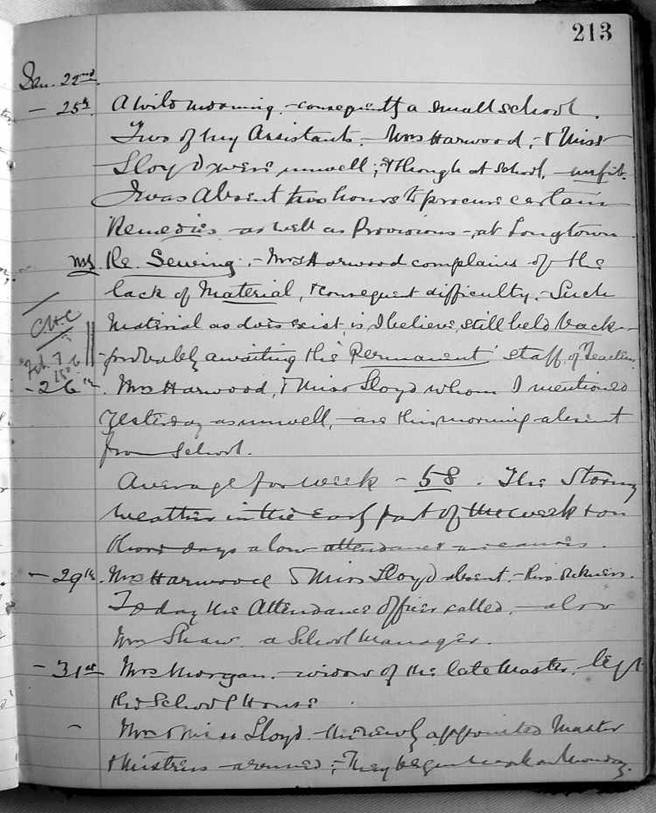 213
Jan. 22nd
- 25th A wild morning, - consequently a small school.
Two of my Assistants - Mrs Harwood, & Miss
Lloyd were unwell; & though at School, - unfit.
I was Absent two hours to procure certain
Remedies - as well as Provisions - at Longtown.
Re. Sewing. - Mrs Harwood complains of the
lack of Material, & consequent difficulty. - Such
Material as does exist, is, I believe, still held back -
probably awaiting the "Permanent" staff of Teachers.
Feb. 7
- 26th. Mrs Harwood, & Miss Lloyd whom I mentioned
yesterday as unwell, - are this morning absent
from School.
Average for week - 58. The Stormy
weather in the Early part of the week & on
days a low attendance
- 29th. Mrs Harwood & Miss Lloyd absent, - thro. sickness.
Today the Attendance Officer called, - also
Mrs Shaw. a School Manager.
- 31st Mrs Morgan. widow of the late Master, left
the School House
- Mr & Miss Lloyd - the newly appointed Master
& Mistress - arrived; - They begin work on Monday.